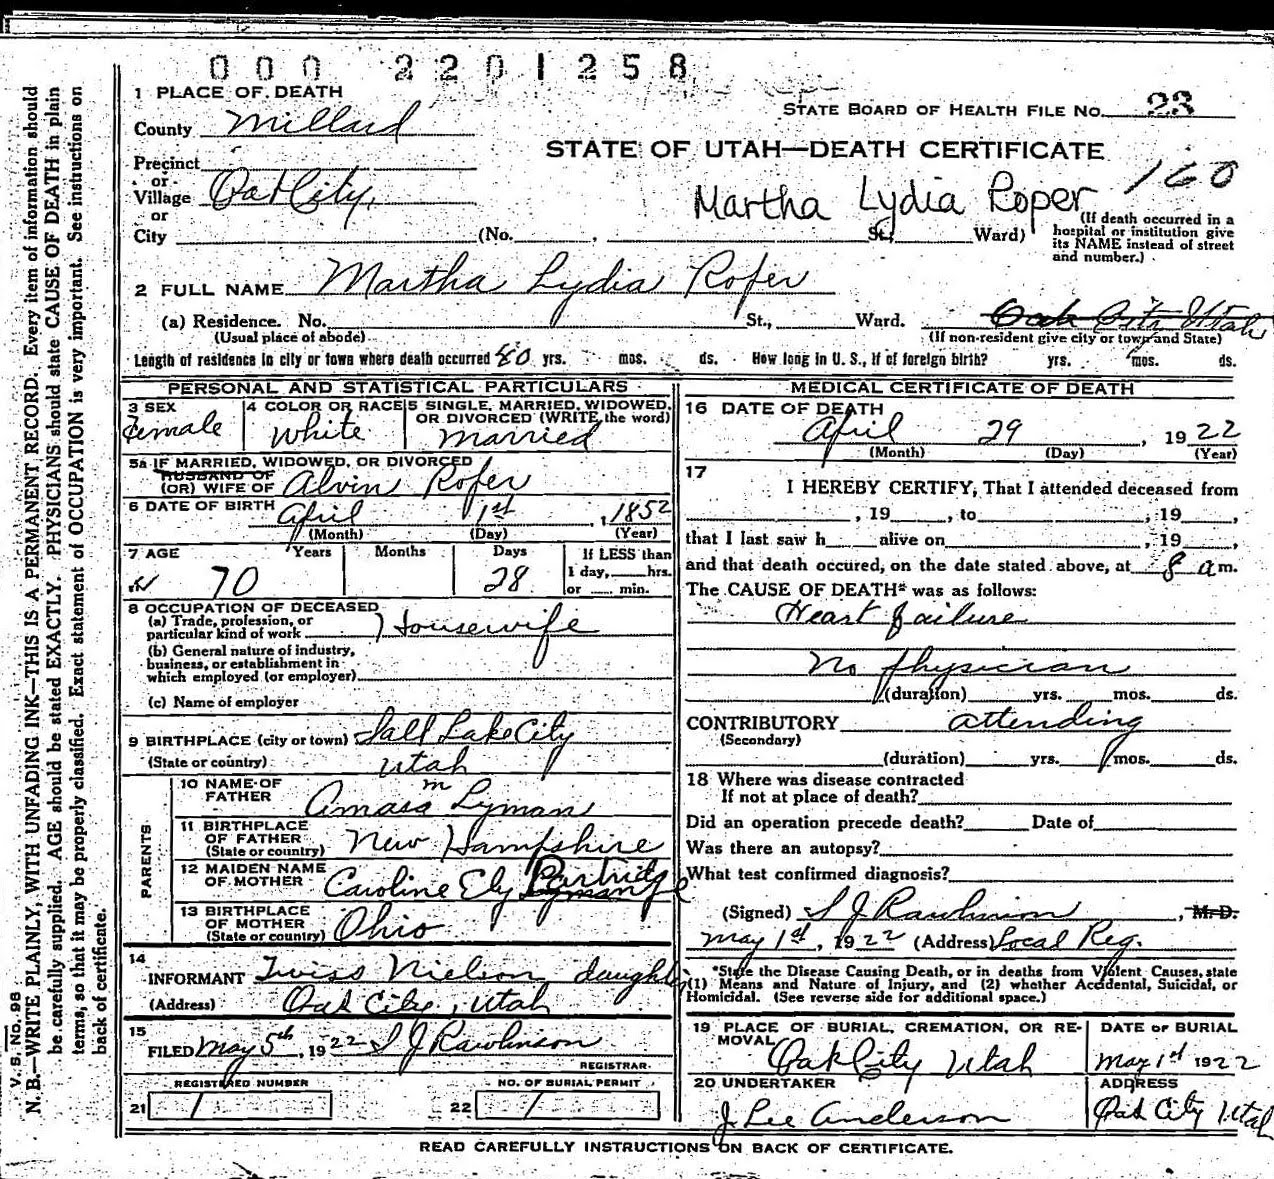 000 2201258
1 PLACE OF DEATH
STATE BOARD OF HEALTH FILE No. 23
County Millard
STATE OF UTAH—DEATH CERTIFICATE
160
Precinct
or
Village Oak City,
or
Martha Lydia Roper
City (No. , St., Ward)
(If death occurred in a
hospital or institution give
its NAME instead of street
and number.)
2 FULL NAME Martha Lydia Roper
(a) Residence. No. St., Ward. Oak City Utah
(Usual place of abode) (If non-resident give city or town and State)
Length of residence in city or town where death occurred yrs. mos. ds. How long in U. S., if of foreign birth? yrs. mos. ds.
PERSONAL AND STATISTICAL PARTICULARS
3 SEX 4 COLOR OR RACE 5 SINGLE, MARRIED, WIDOWED,
OR DIVORCED (WRITE the word)
Female White Married
5a IF MARRIED, WIDOWED, OR DIVORCED
HUSBAND OF
(OR) WIFE OF Alvin Roper
6 DATE OF BIRTH April 1st, 1852
(Month) (Day) (Year)
7 AGE Years Months Days If LESS than
1 day, hrs.
70 28 or min.
8 OCCUPATION OF DECEASED
(a) Trade, profession, or
particular kind of work Housewife
(b) General nature of industry,
business, or establishment in
which employed (or employer)
(c) Name of employer
9 BIRTHPLACE (city or town) Salt Lake City
(State or country) Utah
PARENTS
10 NAME OF
FATHER Amasa m Lyman
11 BIRTHPLACE
OF FATHER
(State or country) New Hampshire
12 MAIDEN NAME
OF MOTHER Caroline Ely Partridge
13 BIRTHPLACE
OF MOTHER
(State or country) Ohio
14
INFORMANT Twiss Nielson daughter
(Address) Oak City, Utah
15
FILED May 5th, 1922 S J Rawlinson
REGISTRAR.
REGISTERED NUMBER NO. OF BURIAL PERMIT
21 / 22 /
MEDICAL CERTIFICATE OF DEATH
16 DATE OF DEATH
April 29, 1922
(Month) (Day) (Year)
17
I HEREBY CERTIFY, That I attended deceased from
, 19 , to , 19 ,
that I last saw h alive on , 19 ,
and that death occured, on the date stated above, at 8 a m.
The CAUSE OF DEATH* was as follows:
Heart failure
No physician
(duration) yrs. mos. ds.
CONTRIBUTORY attending
(Secondary)
(duration) yrs. mos. ds.
18 Where was disease contracted
If not at place of death?
Did an operation precede death? Date of
Was there an autopsy?
What test confirmed diagnosis?
(Signed) S J Rawlinson, M. D.
May 1st, 1922 (Address) Local Reg.
*State the Disease Causing Death, or in deaths from Violent Causes, state
(1) Means and Nature of Injury, and (2) whether Accidental, Suicidal, or
Homicidal. (See reverse side for additional space.)
19 PLACE OF BURIAL, CREMATION, OR RE-
MOVAL Oak City Utah
DATE OF BURIAL
May 1st 1922
20 UNDERTAKER
J Lee Anderson
ADDRESS
Oak City Utah
READ CAREFULLY INSTRUCTIONS ON BACK OF CERTIFICATE.
V. S. No. 98
N. B.—WRITE PLAINLY, WITH UNFADING INK—THIS IS A PERMANENT RECORD. Every item of information should
be carefully supplied. AGE should be stated EXACTLY. PHYSICIANS should state CAUSE OF DEATH in plain
terms, so that it may be properly classified. Exact statement of OCCUPATION is very important. See instructions on
back of certificate.